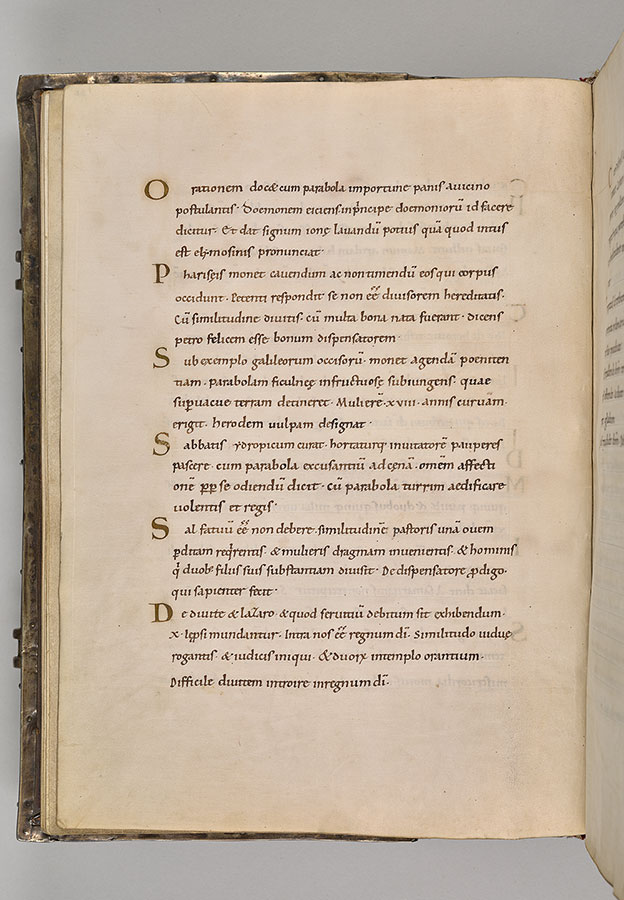 Orationem doc& cum parabola importune panis a uicino
postulantis. Doemonem eiciens inprĩcipe doemoniorũ id facere
dicitur. Et dat signum ionę lauandũ potius quã quod intus
est elęmosinis pronunciat.
Phariseis monet cauendum ac non timendũ eos qui corpus
occidunt. Petenti respondit se non eẽ diuisorem hereditatis.
Cũ similitudine diuitis. cũ multa bona nata fuerant. dicens
petro felicem esse bonum dispensatorem.
Sub exemplo galileorum occisorũ. monet agendã poeniten
tiam. parabolam ficulneę infructuosę subiungens. quae
sup̱uacue terram detineret. Mulierẽ. xviii. annis curuam.
erigit. herodem uulpam designat.
Sabbatis ydropicum curat. hortaturq; inuitatorẽ pauperes
pascere. cum parabola excusantiũ ad cęnã. omẽm affecti
onẽ p̱p̱ se odiendũ dicit. cũ parabola turrim aedificare
uiolentis et regis.
Sal fatuũ eẽ non debere. similitudinẽ pastoris unã ouem
p̱ditam reqͥrentis & mulieris dragmam inuenientis. & hominis
qͥ duob; filiis suis substantiam diuisit. De dispensatore p̱digo.
qui sapienter fecit.
De diuite & lazaro. & quod seruitiũ debitum sit exhibendum.
x. lęp̱si mundantur. Intra nos eẽ regnum dĩ. Similitudo uiduę
rogantis. & iudicis iniqui. & duorꝝ in templo orantium.
Difficile diuitem introire in regnum dĩ.